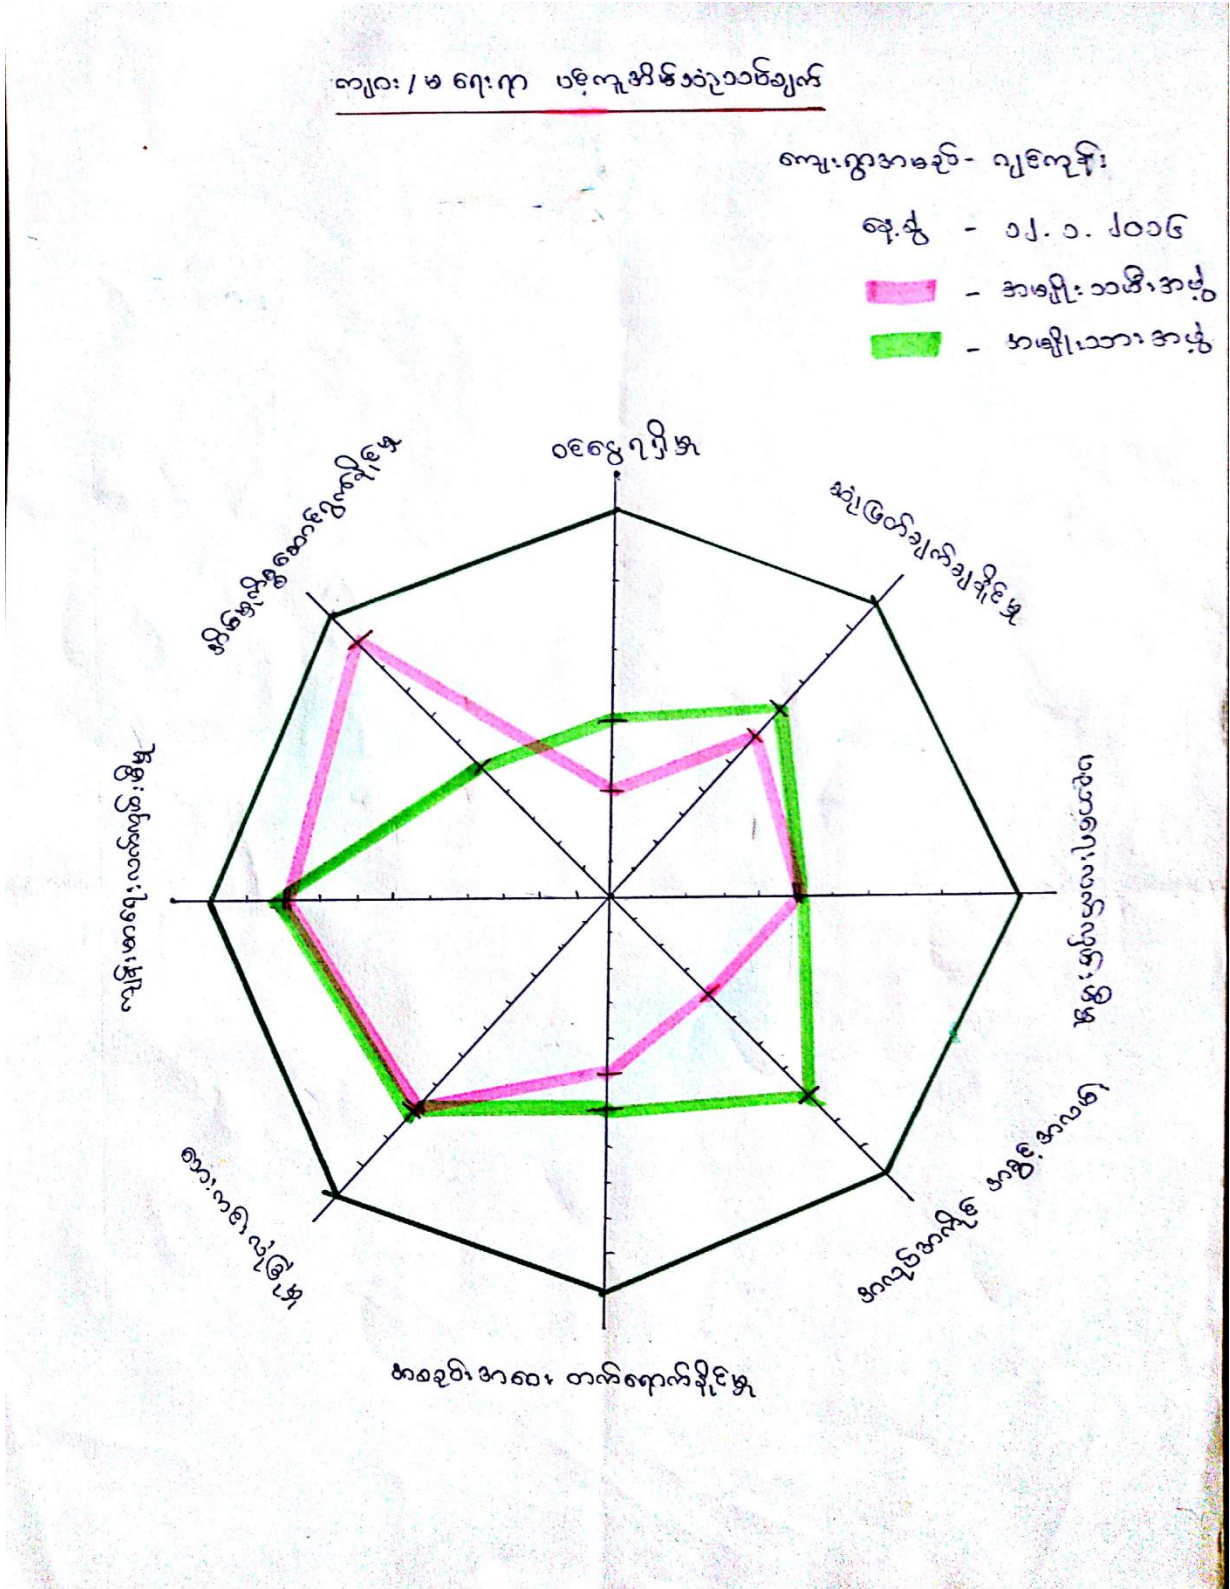 ကျား / မ ရေးရာ ပင့်ကူအိမ်သုံးသပ်ချက်
ကျေးရွာအမည် - ဂျင်ကုန်း
နေ့စွဲ - ၁၂. ၁. ၂၀၁၆
- အမျိုးသမီးအဖွဲ့
- အမျိုးသားအဖွဲ့
ဝင်ငွေရရှိမှု
ဆုံးဖြတ်ချက်ချနိုင်မှု
ပညာရေး
အလုပ်အကိုင် အခွင့်အလမ်း
အစည်းအဝေး တက်ရောက်နိုင်မှု
ဘေးကင်းလုံခြုံမှု
အိမ်မှုကိစ္စဆောင်ရွက်နိုင်မှု